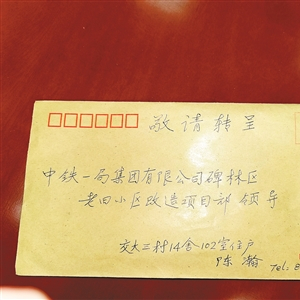 敬请转呈
中铁一局集团有限公司碑林区
老旧小区改造项目部 领导
交大三村14舍102室住户
陈瀚
Tel: